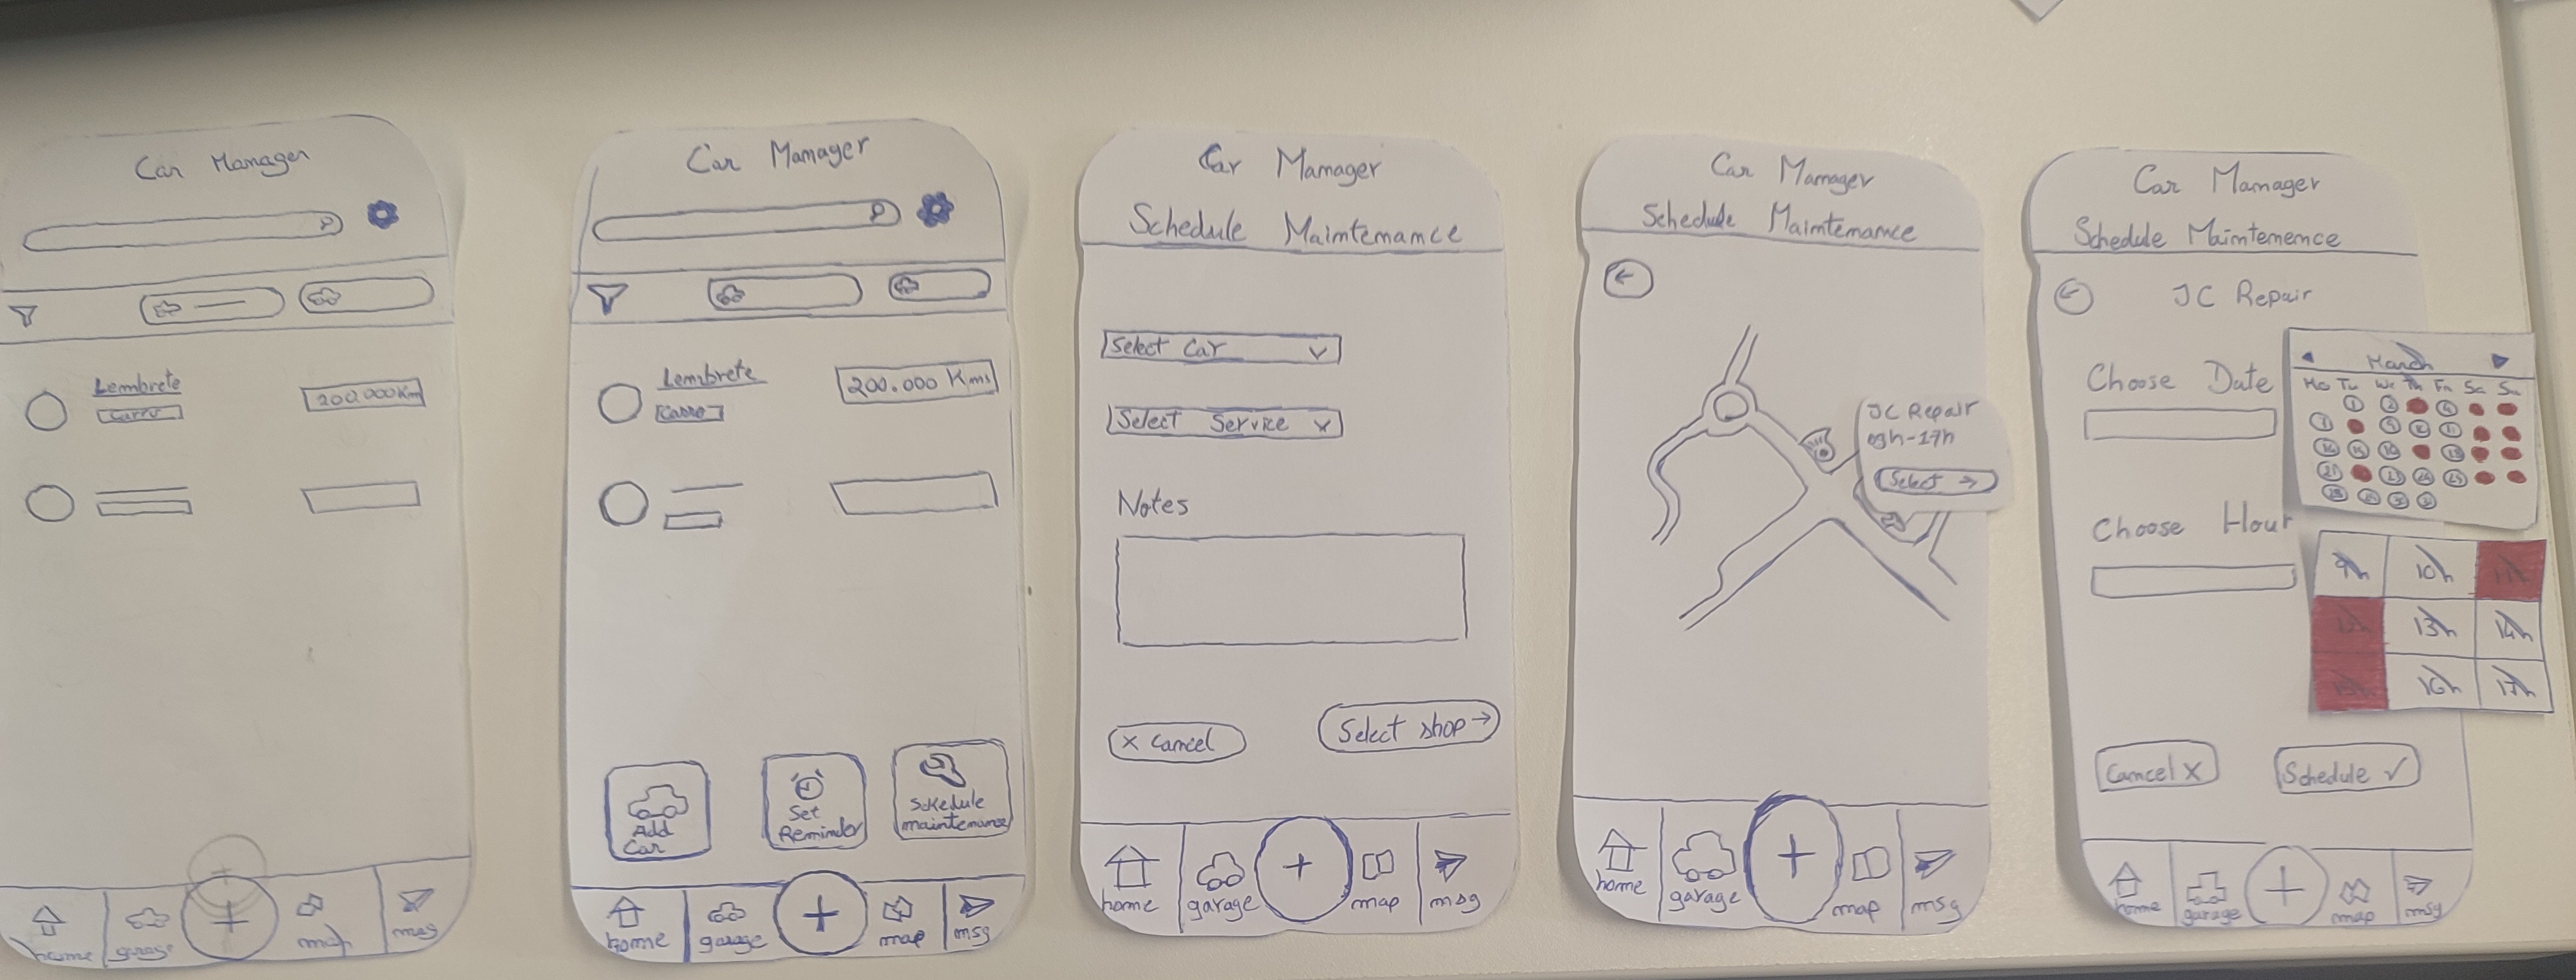 Car Manager
Lembrete
Carro
200.000Km
home
garage
+
map
msg
Car Manager
Lembrete
Carro
200.000 Kms
Add
Car
Set
Reminder
Schedule
maintenance
home
garage
+
map
msg
Car Manager
Schedule Maintenance
Select Car
Select Service
Notes
x Cancel
Select shop →
home
garage
+
map
msg
Car Manager
Schedule Maintenance
←
JC Repair
09h-17h
Select →
home
garage
+
map
msg
Car Manager
Schedule Maintemence
←
JC Repair
Choose Date
March
Mo Tu We Th Fr Sa Su
Choose Hour
9h 10h 11h
12h 13h 14h
15h 16h 17h
Cancel x
Schedule ✓
home
garage
+
map
msg